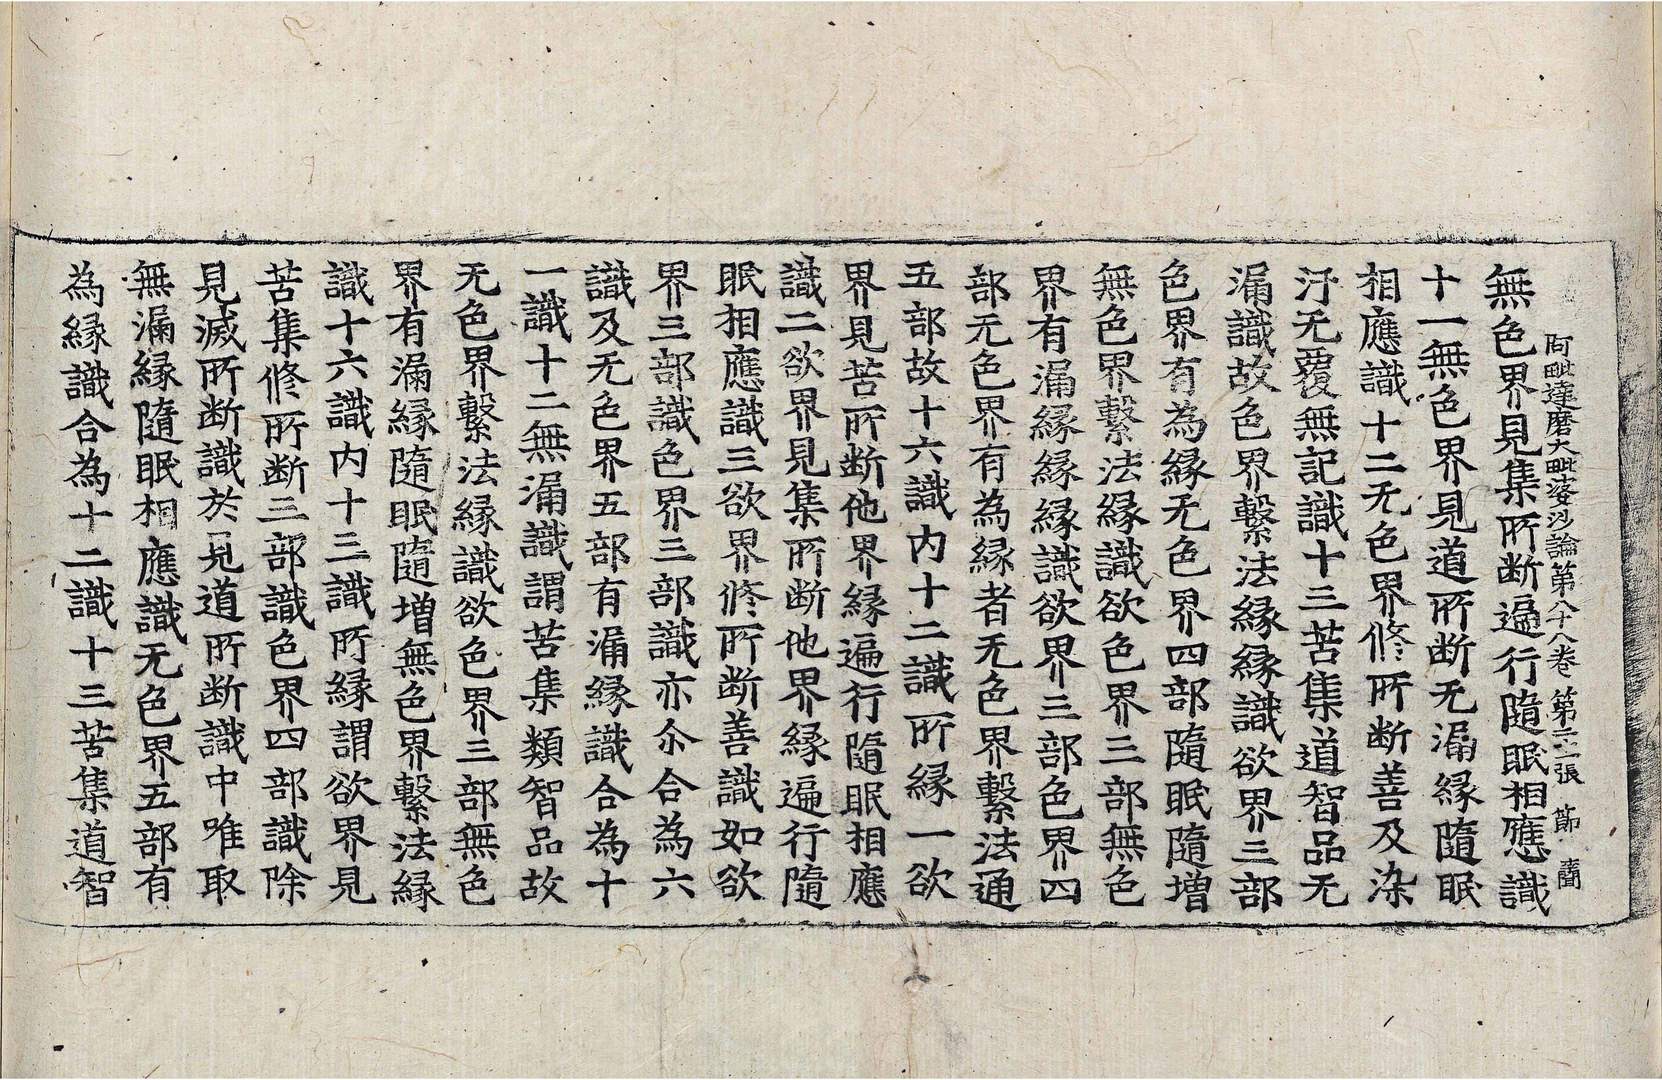 阿毗達磨大毗婆沙論第八十八卷 第二張 節
無色界見集所断遍行隨眠相應識
十一無色界見道所断无漏緣隨眠
相應識十二无色界修所断善及染
汙无覆無記識十三苦集道智品无
漏識故色界繫法緣緣識欲界三部
色界有為緣无色界四部隨眠隨增
無色界繫法緣識欲色界三部無色
界有漏緣緣識欲界三部色界四
部无色界有為緣者无色界繫法通
五部故十六識内十二識所緣一欲
界見苦所断他界緣遍行隨眠相應
識二欲界見集所断他界緣遍行隨
眠相應識三欲界修所断善識如欲
界三部識色界三部識亦尒合為六
識及无色界五部有漏緣識合為十
一識十二無漏識謂苦集類智品故
无色界繫法緣識欲色界三部無色
界有漏緣隨眠隨增無色界繫法緣
識十六識内十三識所緣謂欲界見
苦集修所断三部識色界四部識除
見滅所断識於見道所断識中唯取
無漏緣隨眠相應識无色界五部有
為緣識合為十二識十三苦集道智